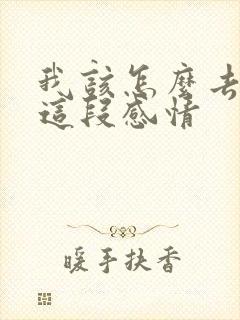 我該怎麼去
這段感情
暖手扶香